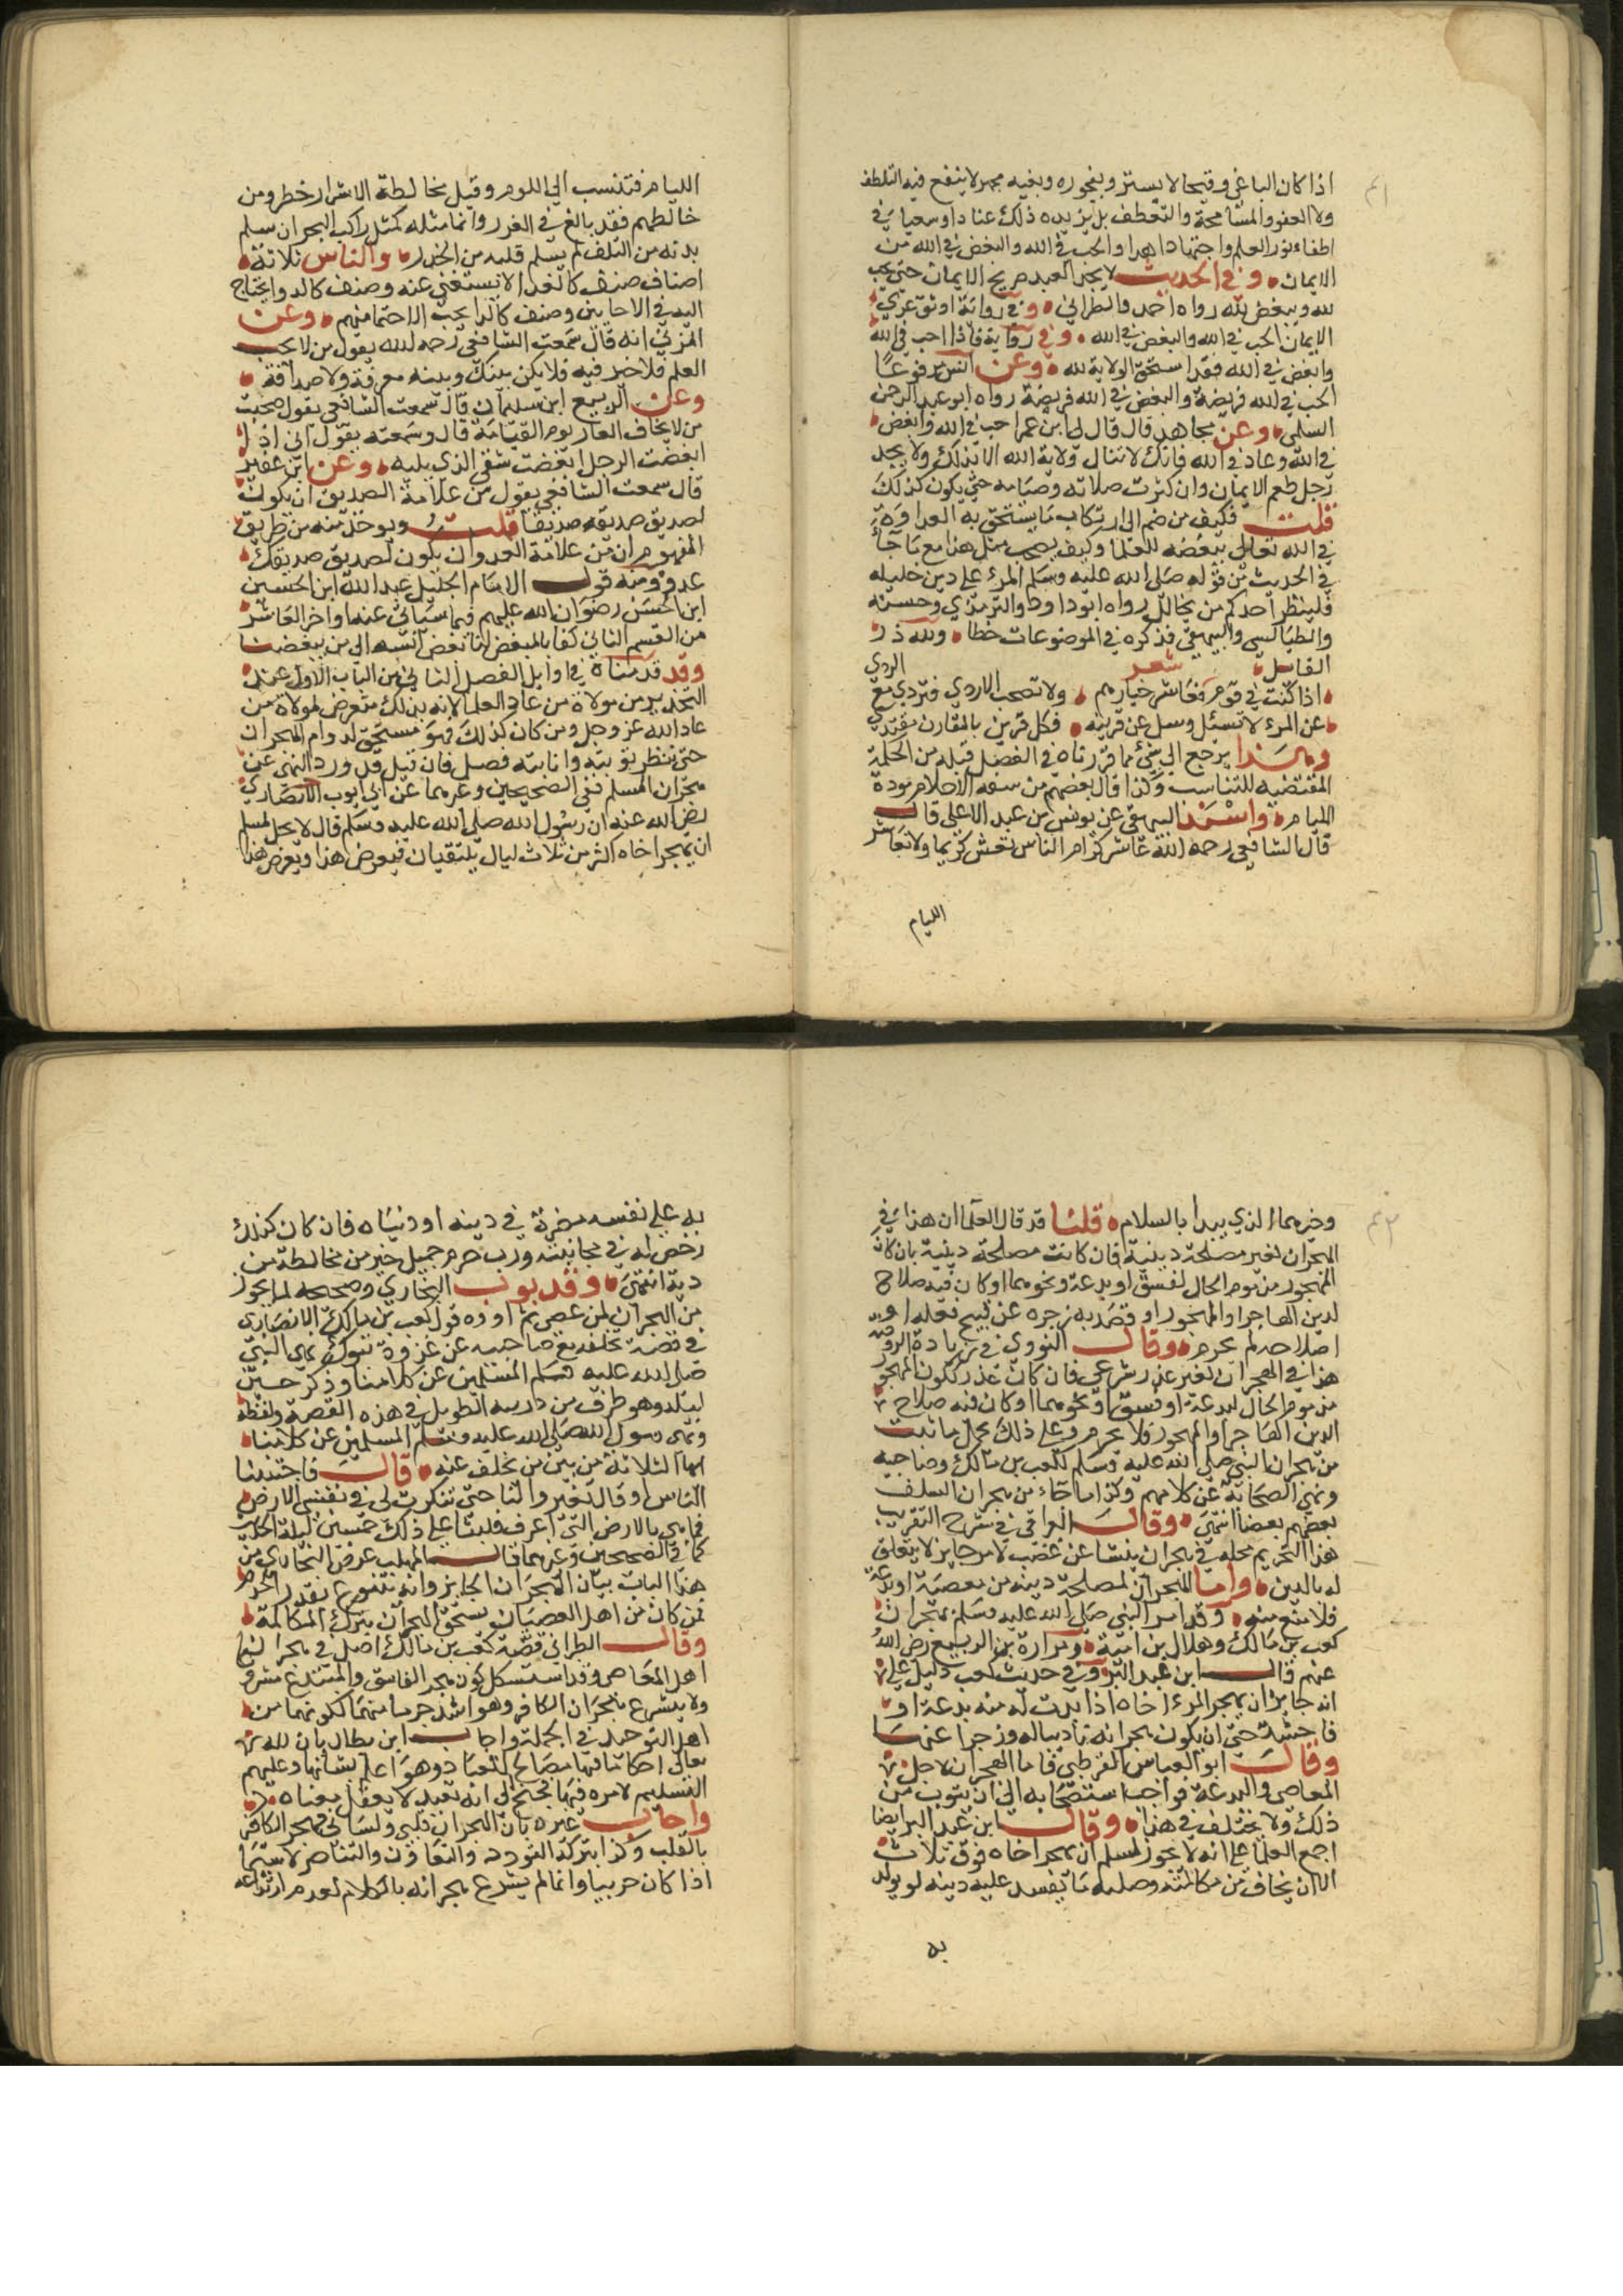 اذا كان الباغي وقيحا لا يستتر وبفجوره وبغيه مجهر لا ينفع فيه التلطف
ولا العفو والمسامحة والتعطف بل يزيده ذلك عنادا وسعيا في
اطفاء نور العلم واجتهادا هذا والحب في الله والبغض في الله من
الايمان وفي الحديث لا يجد العبد صريح الايمان حتى يحب
لله ويبغض لله رواه احمد والطبراني وفي رواية اوثق عرى
الايمان الحب في الله والبغض في الله وفي رواية فاذا احب في الله
وابغض في الله فقد استحق الولاية لله وعن انس مرفوعا
الحب في الله فريضة والبغض في الله فريضة رواه ابو عبد الرحمن
السلمي وعن مجاهد قال قال لي ابن عمر احب في الله وابغض
في الله وعاد في الله فانك لا تنال ولاية الله الا بذلك ولا يجد
رجل طعم الايمان وان كثرت صلاته وصيامه حتى يكون كذلك
قلت فكيف من ضم الى ارتكاب ما يستحق به العداوة
في الله تعالى بغضه للعلما وكيف يصحب مثل هذا مع ما جاء
في الحديث من قوله صلى الله عليه وسلم المرء على دين خليله
فلينظر احدكم من يخالل رواه ابو داود والترمذي وحسنه
والطيالسي والبيهقي فذكره في الموضوعات خطا ولله در
القائل شعر
اذا كنت في قوم فعاشر خيارهم ولا تصحب الاردي فتردى مع الردي
عن المرء لا تسئل وسل عن قرينه فكل قرين بالمقارن يقتدي
وهذا يرجع الى شئ مما قررناه في الفصل قبله من الحكمة
المقتضيه للتناسب ولذا قال بعضهم من سفه الاحلام مودة
الليام واسند البيهقي عن يونس بن عبد الاعلى قال
قال الشافعي رحمه الله عاشر كرام الناس تعش كريما ولا تعاشر
الليام
الليام فتنسب الى اللوم وقيل مخالطة الاشرار خطر ومن
خالطهم فقد بالغ في الغرر وانما مثله كمثل راكب البحر ان سلم
بدنه من التلف لم يسلم قلبه من الحذر والناس ثلاثة
اصناف صنف كالغذا لا تستغني عنه وصنف كالدوا يحتاج
اليه في الاحايين وصنف كالدا يجب الاحتما منهم وعن
المزني انه قال سمعت الشافعي رحمه الله يقول من لا يحب
العلم فلا خير فيه فلا يكن بينك وبينه معرفة ولا صداقة
وعن الربيع ابن سليمان قال سمعت الشافعي يقول صحبت
من لا يخاف العار يوم القيامة قال وسمعته يقول اني اذا
ابغضت الرجل ابغضت شقي الذي يليه وعن ابن عفير
قال سمعت الشافعي يقول من علامة الصديق ان يكون
لصديق صديقه صديقا قلت ويوخذ منه من طريق
المفهوم ان من علامة العدو ان يكون لصديق صديقك
عدو ومنه قول الامام الجليل عبد الله ابن الحسين
ابن الحسن رضوان الله عليهم فيما سياتي عنه اواخر العاشر
من القسم الثاني كفا بالمبغض لنا بغض انسبه الى من يبغضنا
وقد قدمناه في اوايل الفصل الثاني من الباب الاول عند
التحذير من مولاة من عادى العلما لانه بذلك متعرض لمولاة من
عادا الله عز وجل ومن كان كذلك فهو مستحق لدوام الهجران
حتى تنظر توبته وانابته فصل فان قيل قد ورد النهي عن
هجران المسلم ففي الصحيحين وغيرهما عن ابي ايوب الانصاري
رضي الله عنه ان رسول الله صلى الله عليه وسلم قال لا يحل لمسلم
ان يهجر اخاه اكثر من ثلاث ليال يلتقيان فيعرض هذا ويعرض هذا
وخيرهما الذي يبدا بالسلام قلنا قد قال العلما ان هذا في
الهجران لغير مصلحة دينية فان كانت مصلحة دينية بان كان
المهجور مذموم الحال لفسق او بدعة ونحوهما او كان فيه صلاح
لدين الهاجر او المهجور او قصد به زجره عن قبيح فعله او
اصلاحه لم يحرم وقال النووي في زيادة الروضة
هذا في الهجران لغير عذر شرعي فان كان عذر لكون المهجور
مذموم الحال لبدعة او فسق او نحوهما او كان فيه صلاح
الدين الهاجر او المهجور فلا يحرم وعلى ذلك يحمل ما ثبت
من هجران النبي صلى الله عليه وسلم لكعب بن مالك وصاحبيه
ونهي الصحابة عن كلامهم وكذا ما جاء من هجران السلف
بعضهم بعضا انتهى وقال العراقي في شرح التقريب
هذا التحريم محله في هجران ينشا عن غضب لامر جايز لا يتعلق
له بالدين واما الهجران لمصلحة دينيه من معصية او بدعة
فلا منع منه وقد امر النبي صلى الله عليه وسلم بهجران
كعب بن مالك وهلال بن امية ومرارة بن الربيع رضي الله
عنهم قال ابن عبد البر وفي حديث كعب دليل على
انه جايز ان يهجر المرء اخاه اذا بدت له منه بدعة او
فاحشة حتى ان يكون هجرانه تاديبا له وزجرا عنها
وقال ابو العباس القرطبي فاما الهجران لاجل
المعاصي والبدعة فواجب استصحابه الى ان يتوب من
ذلك ولا يختلف في هذا وقال ابن عبد البر ايضا
اجمع العلما على انه لا يجوز لمسلم ان يهجر اخاه فوق ثلاث
الا ان يخاف من مكالمته وصلته ما يفسد عليه دينه او يولد
به
به على نفسه مضرة في دينه او دنياه فان كان كذلك
رخص له في مجانبته ورب صرم جميل خير من مخالطة من
دية انتهى وقد بوب البخاري وصححه لما يجوز
من الهجران لمن عصى ثم اورد قول كعب بن مالك الانصاري
في قصة تخلفه مع صاحبيه عن غزوة تبوك نهي النبي
صلى الله عليه وسلم المسلمين عن كلامنا وذكر خمسين
ليلة وهو طرف من حديثه الطويل في هذه القصة ولفظه
ونهى رسول الله صلى الله عليه وسلم المسلمين عن كلامنا
ايها الثلاثة من بين من تخلف عنه قال فاجتنبنا
الناس او قال تغيروا لنا حتى تنكرت لي في نفسي الارض
فما هي بالارض التي اعرف فلبثنا على ذلك خمسين ليلة الحديث
كما في الصحيحين وغيرهما قال المهلب غرض البخاري من
هذا الباب بيان الهجران الجايز وانه يتنوع بقدر الجرم
فمن كان من اهل العصيان يستحق الهجران بترك المكالمة
وقال الطبراني قصة كعب بن مالك اصل في هجران
اهل المعاصي وقد استشكل كون هجر الفاسق والمبتدع مشروع
ولا يشرع هجران الكافر وهو اشد جرما منهما لكونهما من
اهل التوحيد في الجملة واجاب ابن بطال بان لله
تعالى احكاما فيها مصالح للعباد وهو اعلم بشانها وعليهم
التسليم لامره فيها فجنح الى انه تعبد لا يعقل معناه
واجاب غيره بان الهجران قلبي ولساني فهجر الكافر
بالقلب وكذا بترك التودد والتعاون والتناصر لا سيما
اذا كان حربيا وانما لم يشرع هجرانه بالكلام لعدم ارتداعه